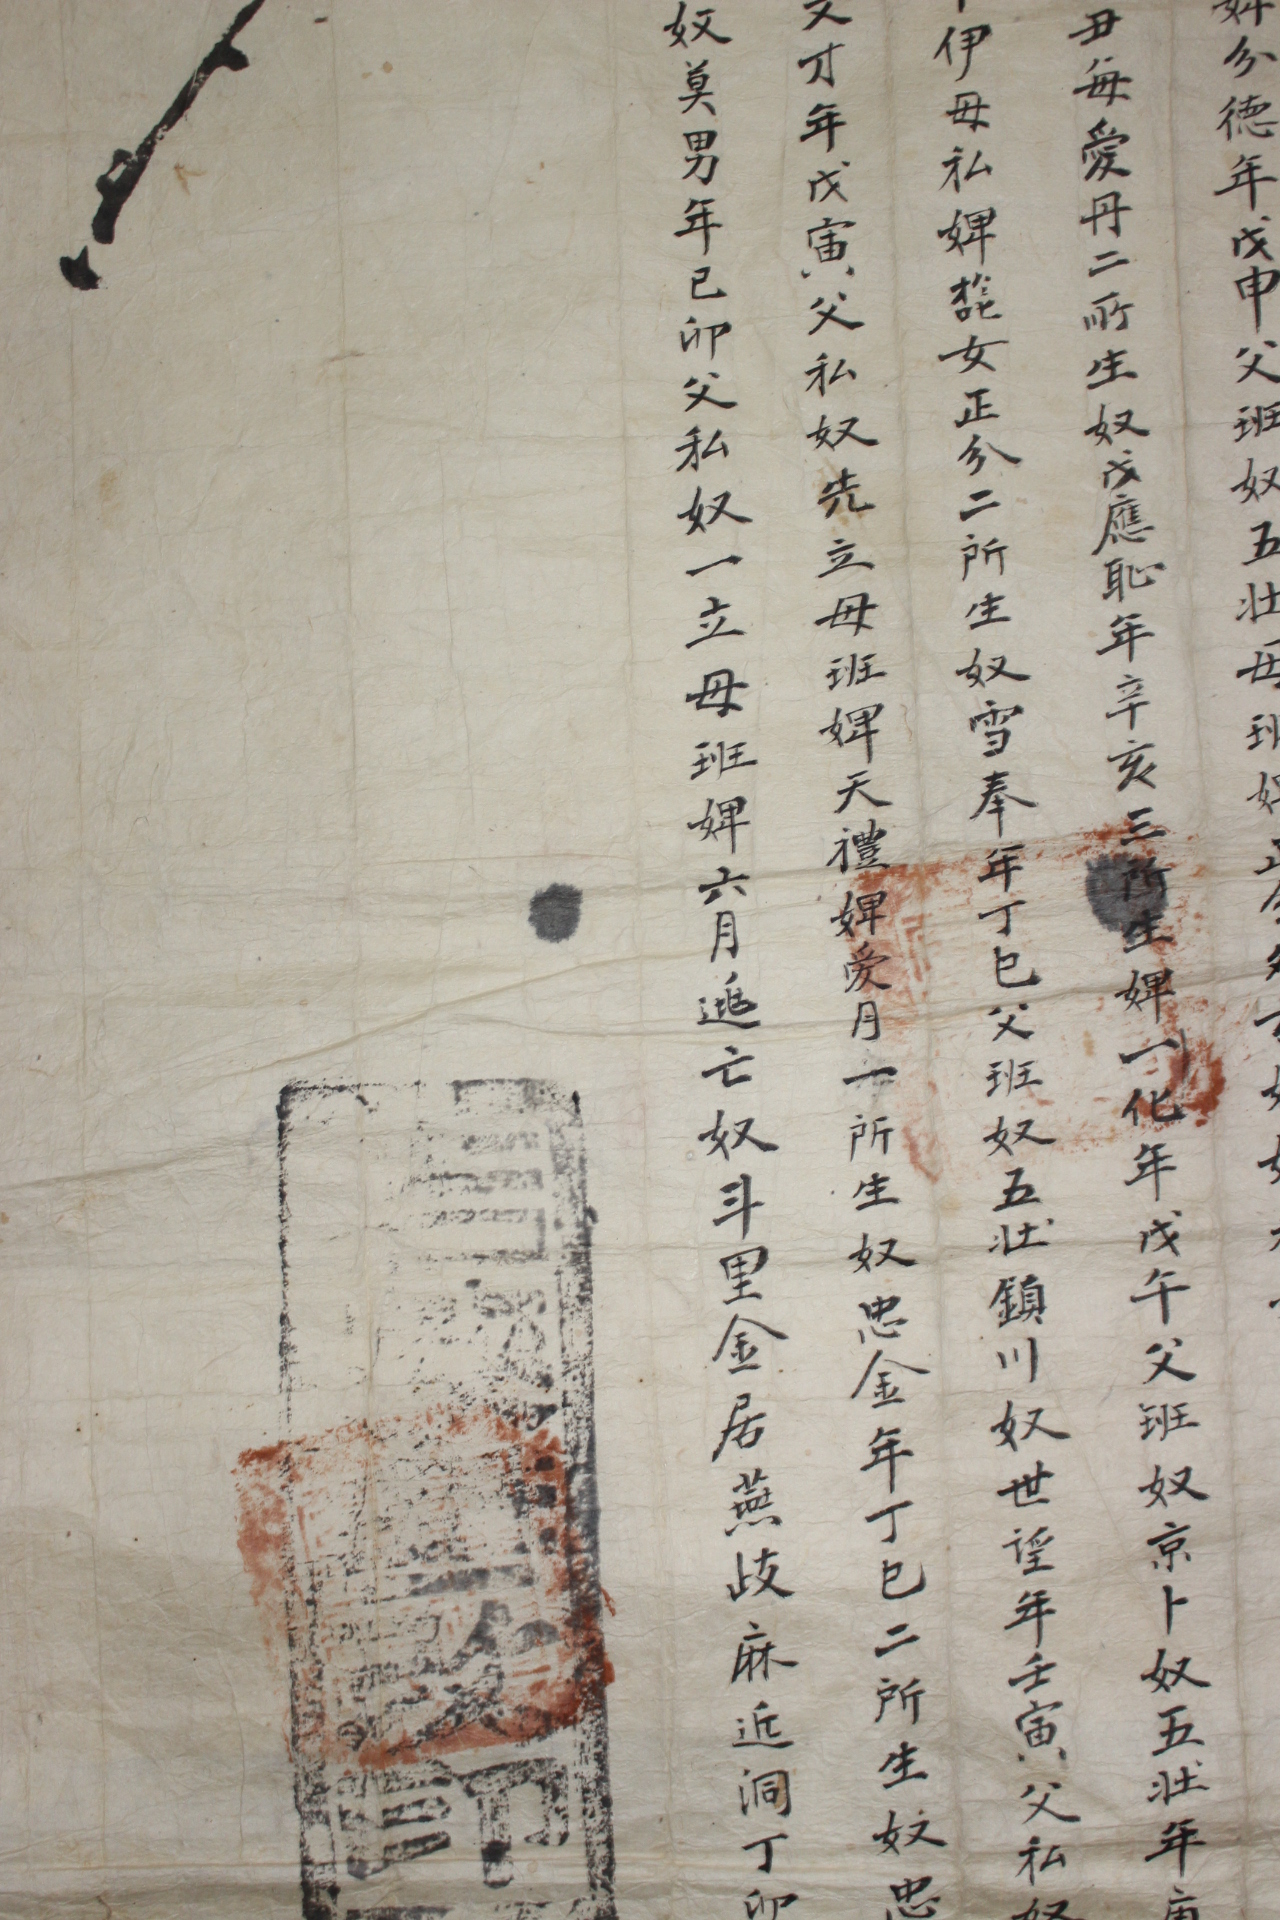 分德年戊申父班奴五壯母班婢
丑每愛丹二所生奴戊應恥年辛亥三所生婢一化年戊午父班奴京卜奴五壯年庚
伊母私婢女正分二所生奴雪奉年丁巳父班奴五壯鎮川奴世諲年壬寅父私奴
文才年戊寅父私奴先立母班婢天禮婢愛月一所生奴忠金年丁巳二所生奴忠
奴莫男年己卯父私奴一立母班婢六月逃亡奴斗里金居燕歧麻近洞丁卯